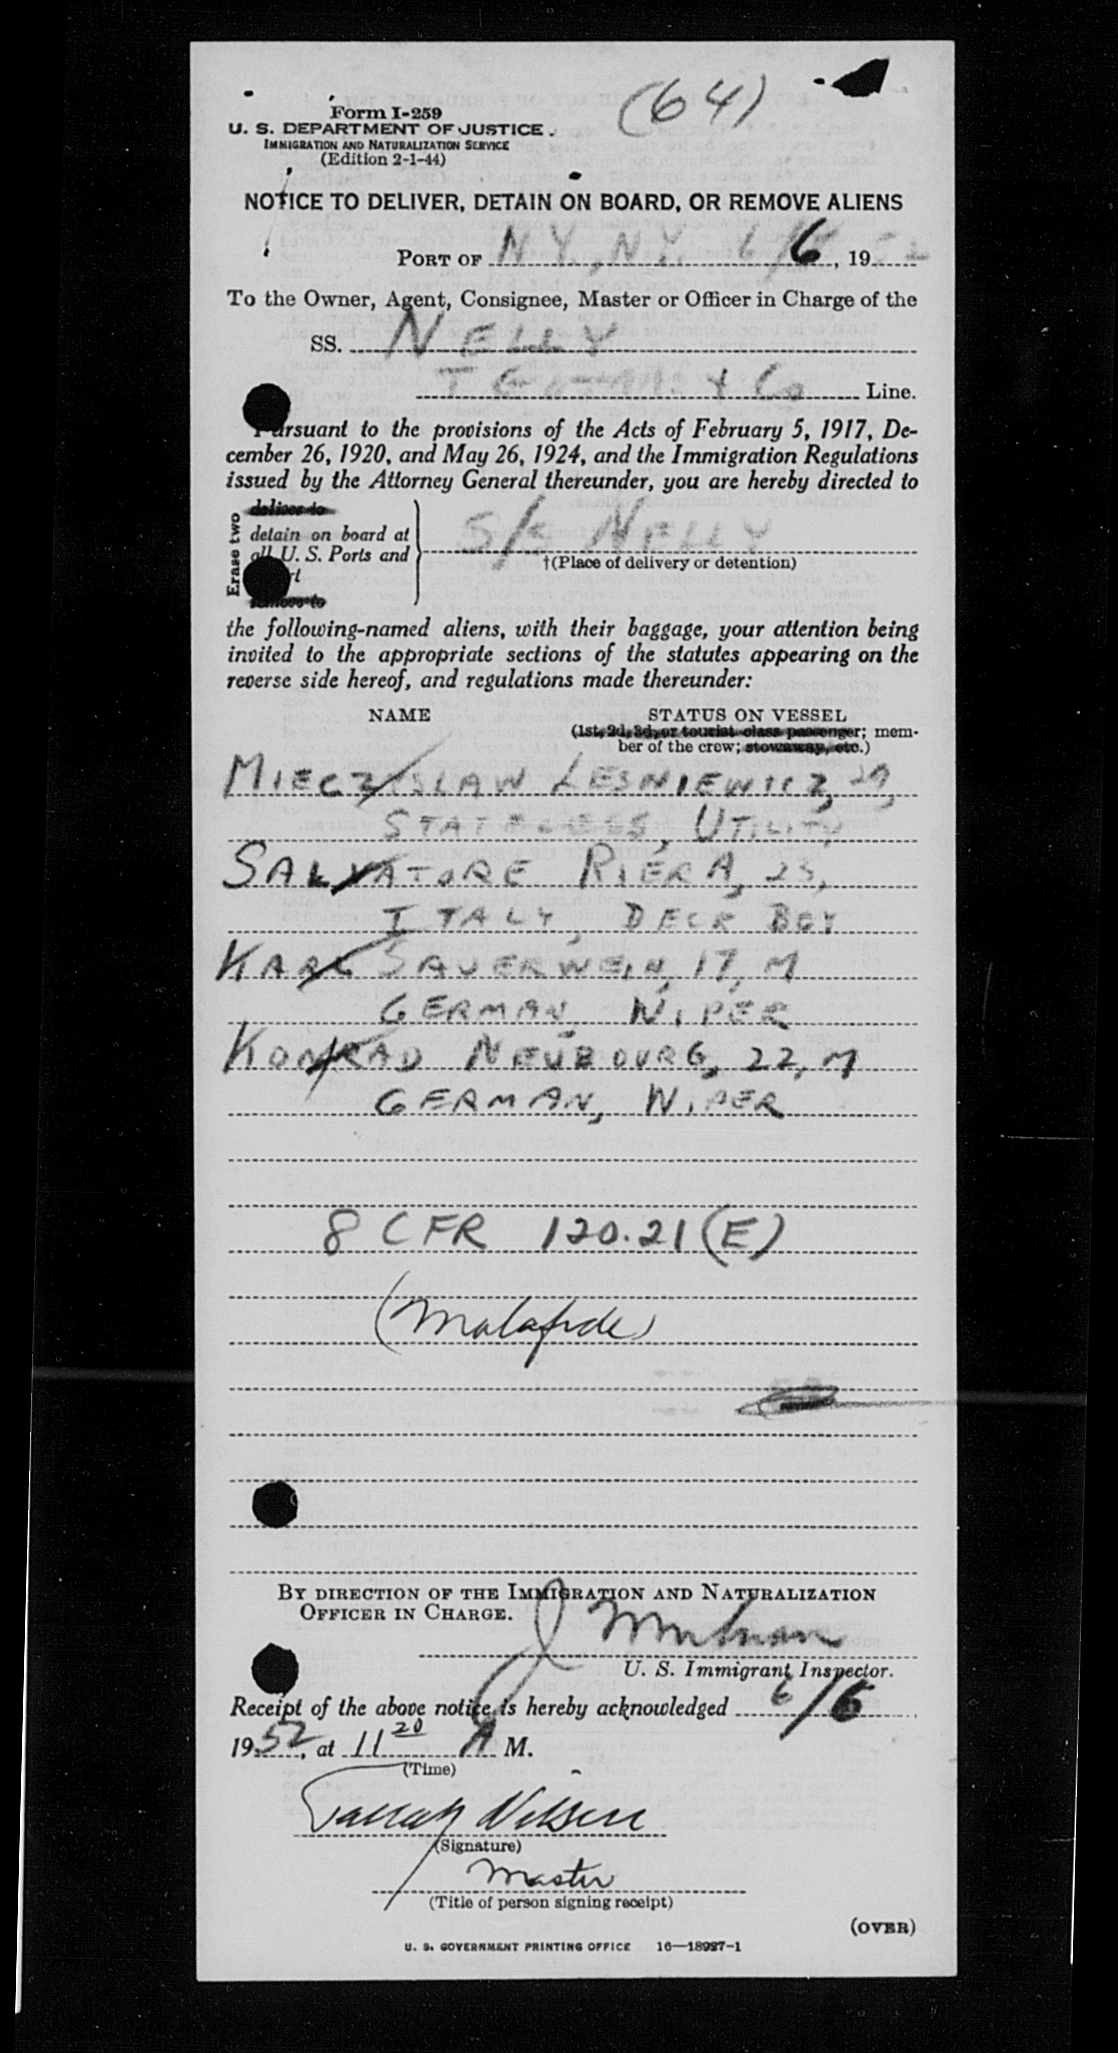 (64)
Form I-259
U. S. DEPARTMENT OF JUSTICE
IMMIGRATION AND NATURALIZATION SERVICE
(Edition 2-1-44)
NOTICE TO DELIVER, DETAIN ON BOARD, OR REMOVE ALIENS
PORT OF N.Y., N.Y. 6/6, 1952
To the Owner, Agent, Consignee, Master or Officer in Charge of the
SS. NELLY
& Co Line.
Pursuant to the provisions of the Acts of February 5, 1917, De-
cember 26, 1920, and May 26, 1924, and the Immigration Regulations
issued by the Attorney General thereunder, you are hereby directed to
Erase two
deliver to
detain on board at
all U. S. Ports and
remove to
S/S NELLY
†(Place of delivery or detention)
the following-named aliens, with their baggage, your attention being
invited to the appropriate sections of the statutes appearing on the
reverse side hereof, and regulations made thereunder:
NAME STATUS ON VESSEL
(1st, 2d, 3d, or tourist class passenger; mem-
ber of the crew; stowaway, etc.)
MIECZISLAW LESNIEWICZ, 29,
STATELESS, UTILITY
SALVATORE RIERA, 23,
ITALY, DECK BOY
KARL SAUERWEIN, 17, M
GERMAN, WIPER
KONRAD NEUBOURG, 22, M
GERMAN, WIPER
8 CFR 120.21(E)
(Malafide)
BY DIRECTION OF THE IMMIGRATION AND NATURALIZATION
OFFICER IN CHARGE.
U. S. Immigrant Inspector.
Receipt of the above notice is hereby acknowledged 6/6
1952, at 11 20 A M.
(Time)
Nilsen
(Signature)
Master
(Title of person signing receipt)
(OVER)
U. S. GOVERNMENT PRINTING OFFICE 16—18927-1